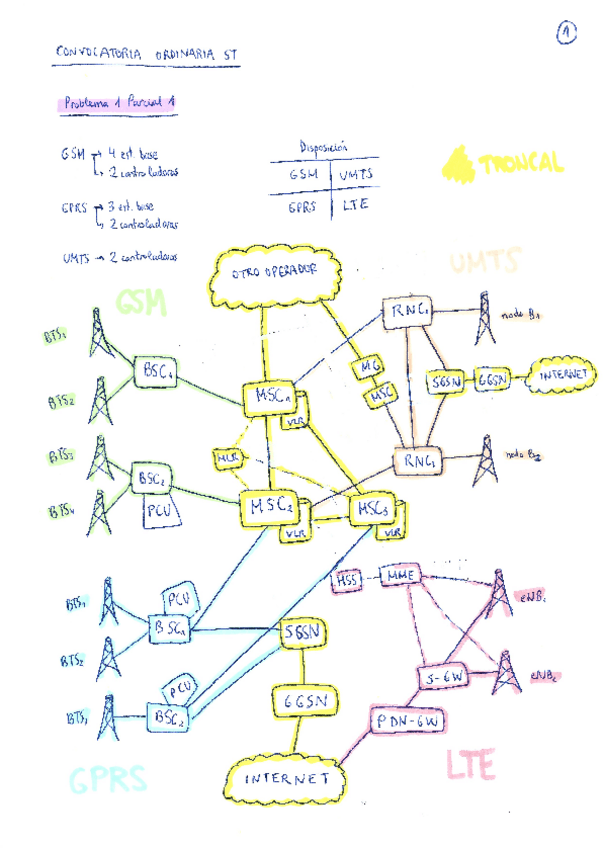 1
CONVOCATORIA ORDINARIA ST
Problema 1 Parcial 1
GSM → 4 est. base
↳ 2 controladoras
GPRS → 3 est. base
↳ 2 controladoras
UMTS → 2 controladoras
Disposición
GSM UMTS
GPRS LTE
TRONCAL
UMTS
GSM
OTRO OPERADOR
RNC1
nodo B1
BTS1
BSC1
MG
MSC
SGSN
GGSN
INTERNET
BTS2
MSC1
VLR
BTS3
HLR
RNC1
nodo B2
BSC2
BTS4
PCU
MSC2
VLR
MSC3
VLR
HSS
MME
eNB1
BTS1
PCU
BSC1
SGSN
BTS2
S-GW
eNB2
PCU
GGSN
BTS1
BSC2
PDN-GW
GPRS
INTERNET
LTE